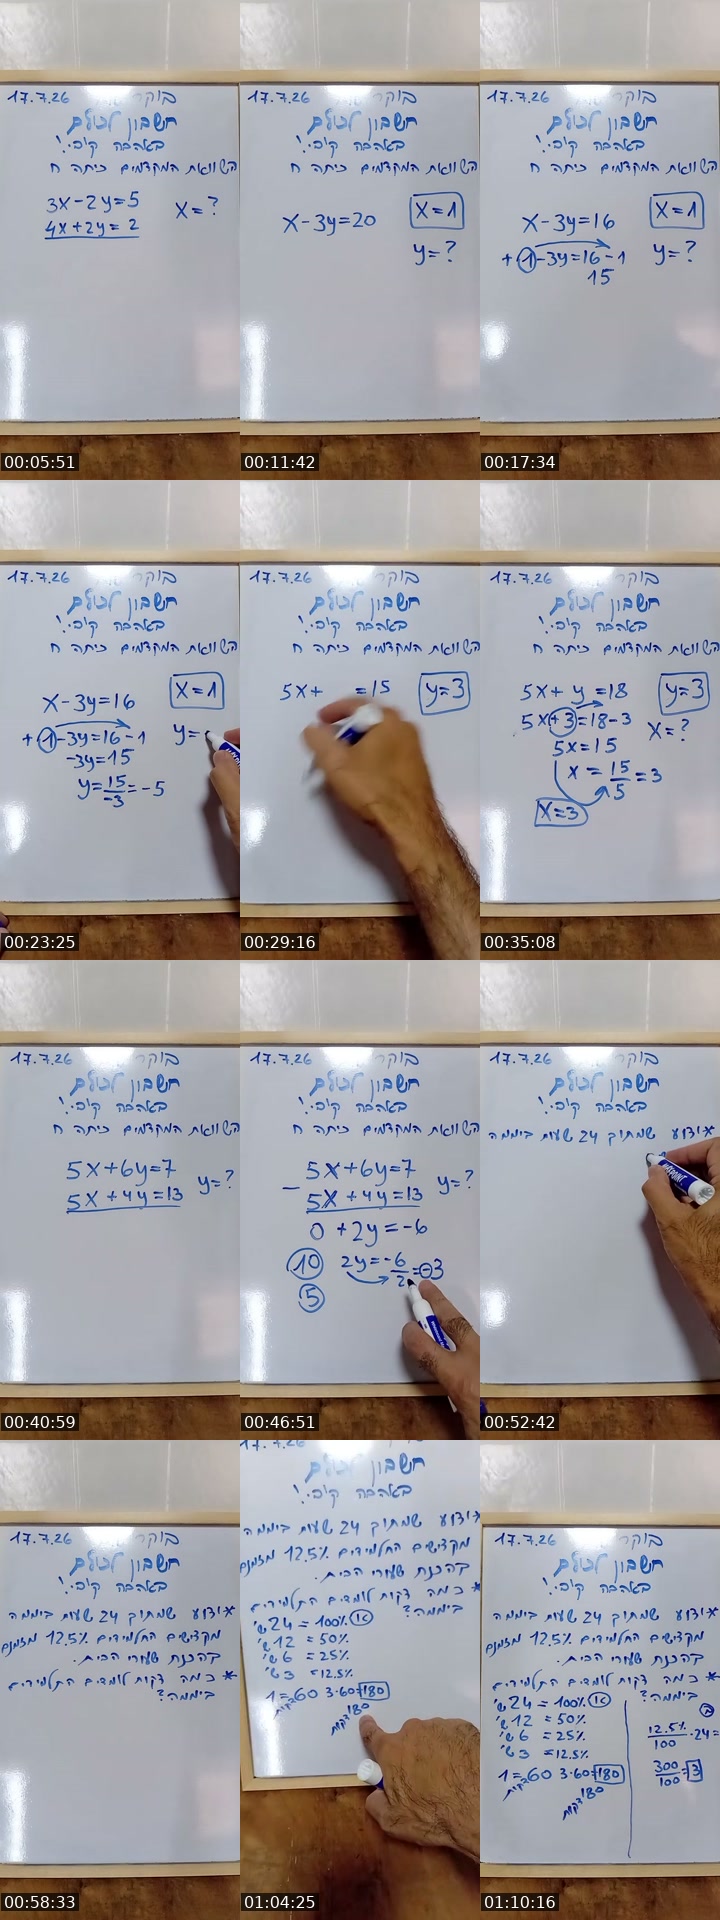 17.7.26 בוקר
חשבון לכולם
באהבה קובי!
השוואת המקדמים כיתה ח
3x-2y=5
4x+2y=2
x=?
00:05:51
17.7.26 בוקר
חשבון לכולם
באהבה קובי!
השוואת המקדמים כיתה ח
x-3y=20
x=1
y=?
00:11:42
17.7.26 בוקר
חשבון לכולם
באהבה קובי!
השוואת המקדמים כיתה ח
x-3y=16
x=1
+1-3y=16-1
y=?
15
00:17:34
17.7.26 בוקר
חשבון לכולם
באהבה קובי!
השוואת המקדמים כיתה ח
x-3y=16
x=1
+1-3y=16-1
y=
-3y=15
y=15/-3=-5
00:23:25
17.7.26 בוקר
חשבון לכולם
באהבה קובי!
השוואת המקדמים כיתה ח
5x+ =15
y=3
00:29:16
17.7.26 בוקר
חשבון לכולם
באהבה קובי!
השוואת המקדמים כיתה ח
5x+y=18
y=3
5x+3=18-3
x=?
5x=15
x=15/5=3
x=3
00:35:08
17.7.26 בוקר
חשבון לכולם
באהבה קובי!
השוואת המקדמים כיתה ח
5x+6y=7
5x+4y=13
y=?
00:40:59
17.7.26 בוקר
חשבון לכולם
באהבה קובי!
השוואת המקדמים כיתה ח
5x+6y=7
- 5x+4y=13
y=?
0+2y=-6
10 2y=-6/2=-3
5
00:46:51
17.7.26 בוקר
חשבון לכולם
באהבה קובי!
*ידוע שמתוך 24 שעות ביממה
00:52:42
17.7.26 בוקר
חשבון לכולם
באהבה קובי!
*ידוע שמתוך 24 שעות ביממה
מקדישים התלמידים 12.5% מזמנם
בהכנת שעורי הבית.
* כמה דקות לומדים התלמידים
ביממה?
00:58:33
17.7.26
חשבון לכולם
באהבה קובי!
*ידוע שמתוך 24 שעות ביממה
מקדישים התלמידים 12.5% מזמנם
בהכנת שעורי הבית.
* כמה דקות לומדים התלמידים
ביממה?
א 24 ש' = 100%
12 ש' = 50%
6 ש' = 25%
3 ש' = 12.5%
1=60 3·60=180
דקות
180 דקות
01:04:25
17.7.26 בוקר
חשבון לכולם
באהבה קובי!
*ידוע שמתוך 24 שעות ביממה
מקדישים התלמידים 12.5% מזמנם
בהכנת שעורי הבית.
* כמה דקות לומדים התלמידים
ביממה?
א 24 ש' = 100%
12 ש' = 50%
6 ש' = 25%
3 ש' = 12.5%
1=60 3·60=180
דקות
180 דקות
ב
12.5%/100·24=
300/100=3
01:10:16